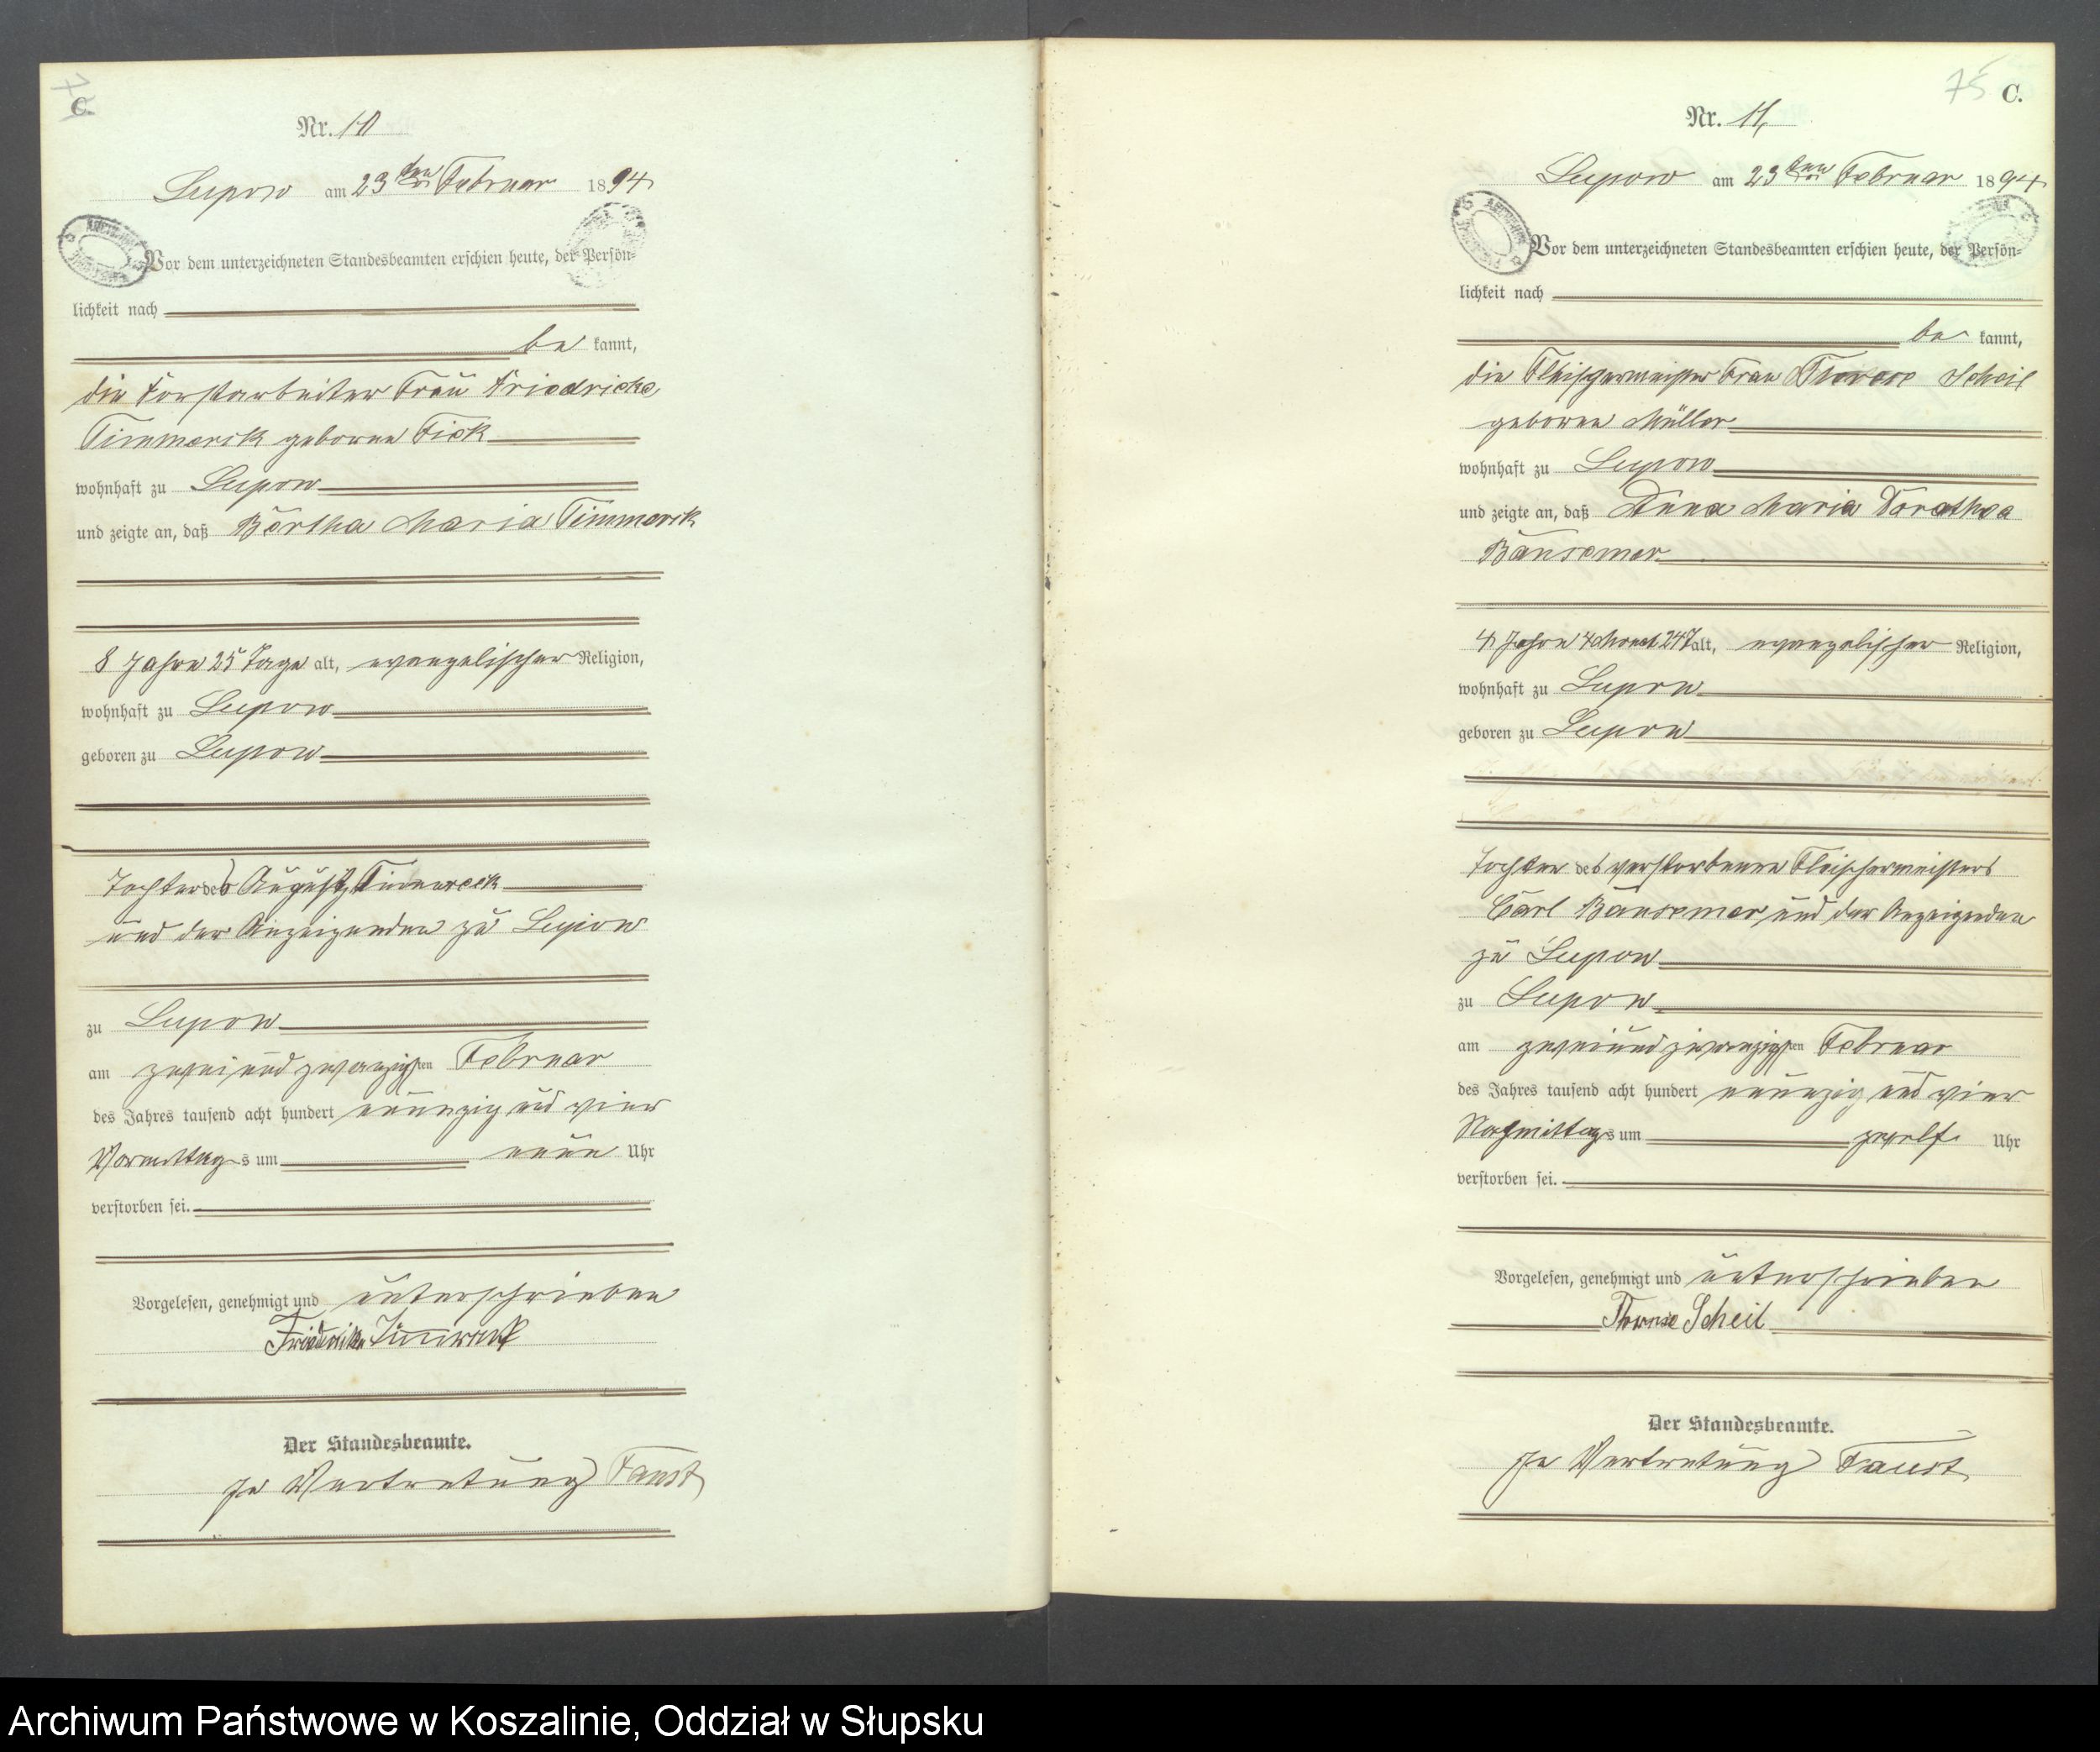 C.
Nr. 10
Lupow am 23ten Februar 1894
Vor dem unterzeichneten Standesbeamten erschien heute, der Persön-
lichkeit nach
be kannt,
die Forstarbeiter Frau Friedricke
Timmreck geborene Fick
wohnhaft zu Lupow
und zeigte an, daß Bertha Maria Timmreck
8 Jahre 25 Tage alt, evangelischer Religion,
wohnhaft zu Lupow
geboren zu Lupow
Tochter des August Timmreck
und der Anzeigenden zu Lupow
zu Lupow
am zwei und zwanzigsten Februar
des Jahres tausend acht hundert neunzig und vier
Vormittags um neun Uhr
verstorben sei.
Vorgelesen, genehmigt und unterschrieben
Friederike Timmreck
Der Standesbeamte.
In Vertretung Faust
75 C.
Nr. 11
Lupow am 23ten Februar 1894
Vor dem unterzeichneten Standesbeamten erschien heute, der Persön-
lichkeit nach
be kannt,
die Fleischermeister Frau Therese Scheil
geborene Müller
wohnhaft zu Lupow
und zeigte an, daß Anna Maria Dorathea
Bansemer
4 Jahre 7 Monat 24 T alt, evangelischer Religion,
wohnhaft zu Lupow
geboren zu Lupow
Tochter des verstorbenen Fleischermeisters
Carl Bansemer und der Anzeigenden
zu Lupow
zu Lupow
am zwei und zwanzigsten Februar
des Jahres tausend acht hundert neunzig und vier
Nachmittags um zwölf Uhr
verstorben sei.
Vorgelesen, genehmigt und unterschrieben
Therese Scheil
Der Standesbeamte.
In Vertretung Faust
Archiwum Państwowe w Koszalinie, Oddział w Słupsku